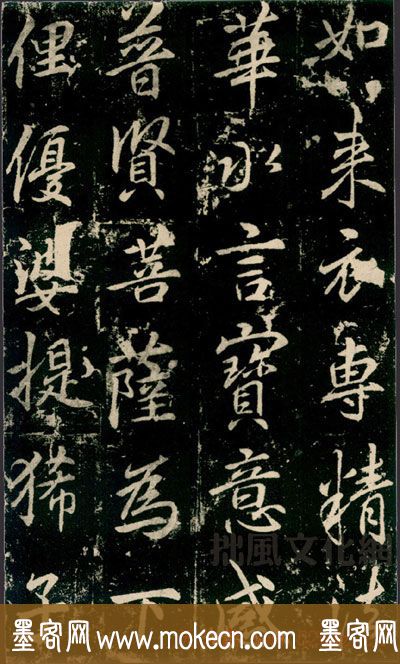 如来衣専精法
華永言寶意感
普賢菩薩為下
俚優婆提狶子
拙風文化網
墨客网 www.mokecn.com 墨客网